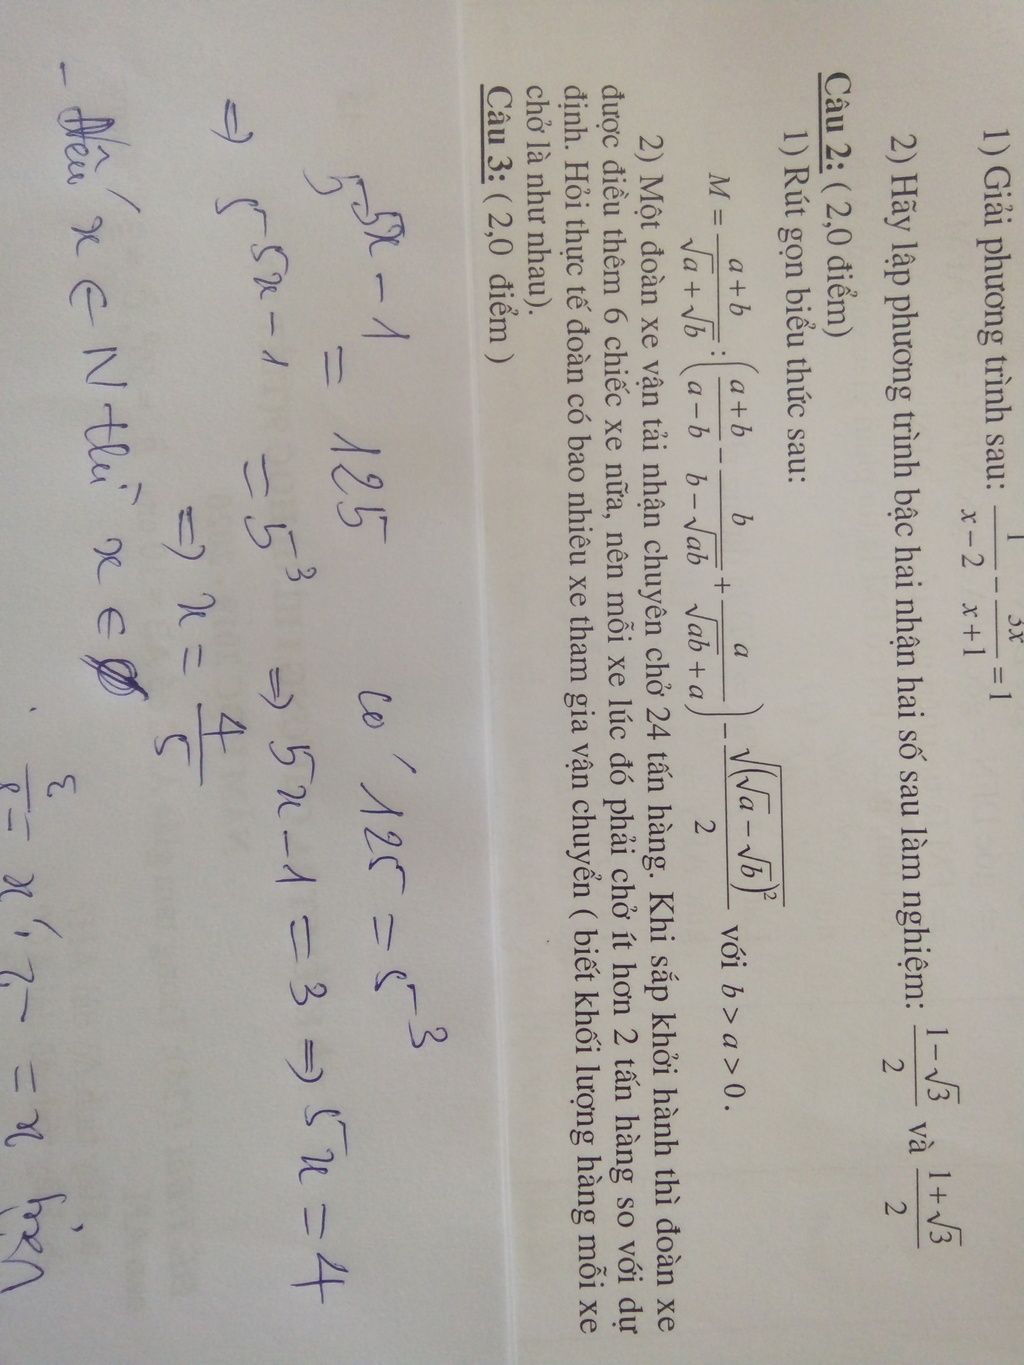 1) Giải phương trình sau: 1/(x − 2) − 3x/(x + 1) = 1
2) Hãy lập phương trình bậc hai nhận hai số sau làm nghiệm: (1 − √3)/2 và (1 + √3)/2
Câu 2: ( 2,0 điểm)
1) Rút gọn biểu thức sau:
M = (a + b)/(√a + √b) : ( (a + b)/(a − b) − b/(b − √ab) + a/(√ab + a) ) − √((√a − √b)²)/2 với b > a > 0 .
2) Một đoàn xe vận tải nhận chuyên chở 24 tấn hàng. Khi sắp khởi hành thì đoàn xe
được điều thêm 6 chiếc xe nữa, nên mỗi xe lúc đó phải chở ít hơn 2 tấn hàng so với dự
định. Hỏi thực tế đoàn có bao nhiêu xe tham gia vận chuyển ( biết khối lượng hàng mỗi xe
chở là như nhau).
Câu 3: ( 2,0 điểm )
5^5x − 1 = 125 có 125 = 5^3
⇒ 5^5x − 1 = 5^3 ⇒ 5x − 1 = 3 ⇒ 5x = 4
⇒ x = 4/5
- Nếu x ∈ N thì x ∈ ∅